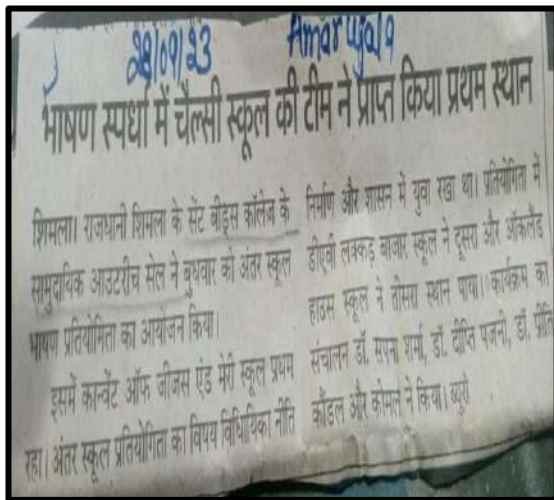 28/09/23 Amar Ujala
भाषण स्पर्धा में चैल्सी स्कूल की टीम ने प्राप्त किया प्रथम स्थान
शिमला। राजधानी शिमला के सेंट बीड्स कॉलेज के
सामुदायिक आउटरीच सेल ने बुधवार को अंतर स्कूल
भाषण प्रतियोगिता का आयोजन किया।
इसमें कान्वेंट ऑफ जीजस एंड मेरी स्कूल प्रथम
रहा। अंतर स्कूल प्रतियोगिता का विषय विधियिका नीति
निर्माण और शासन में युवा रखा था। प्रतियोगिता में
डीएवी लक्कड़ बाजार स्कूल ने दूसरा और ऑकलैंड
हाउस स्कूल ने तीसरा स्थान पाया। कार्यक्रम का
संचालन डॉ. सपना शर्मा, डॉ. दीप्ति पजनी, डॉ. प्रीति
कौंडल और कोमल ने किया। ब्यूरो